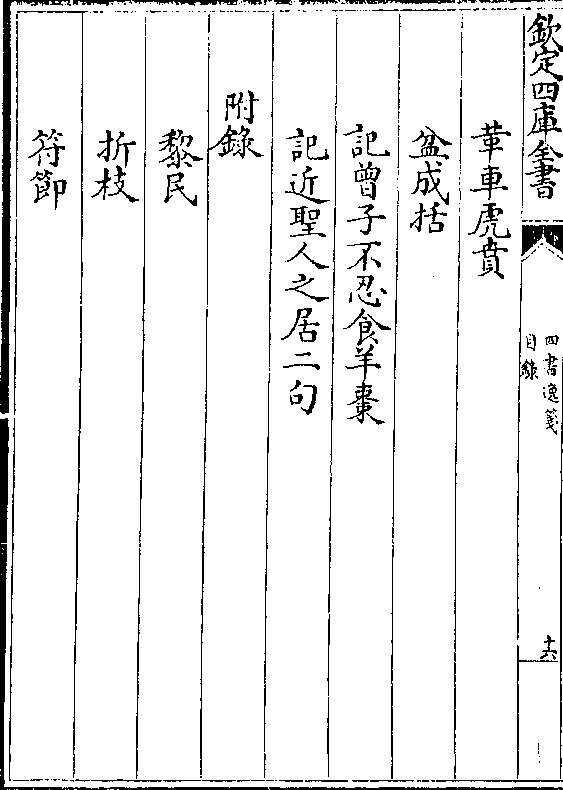 欽定四庫全書
四書逸箋
目錄
十六
革車虎賁
盆成括
記曾子不忍食羊棗
記近聖人之居二句
附錄
黎民
折枝
符節